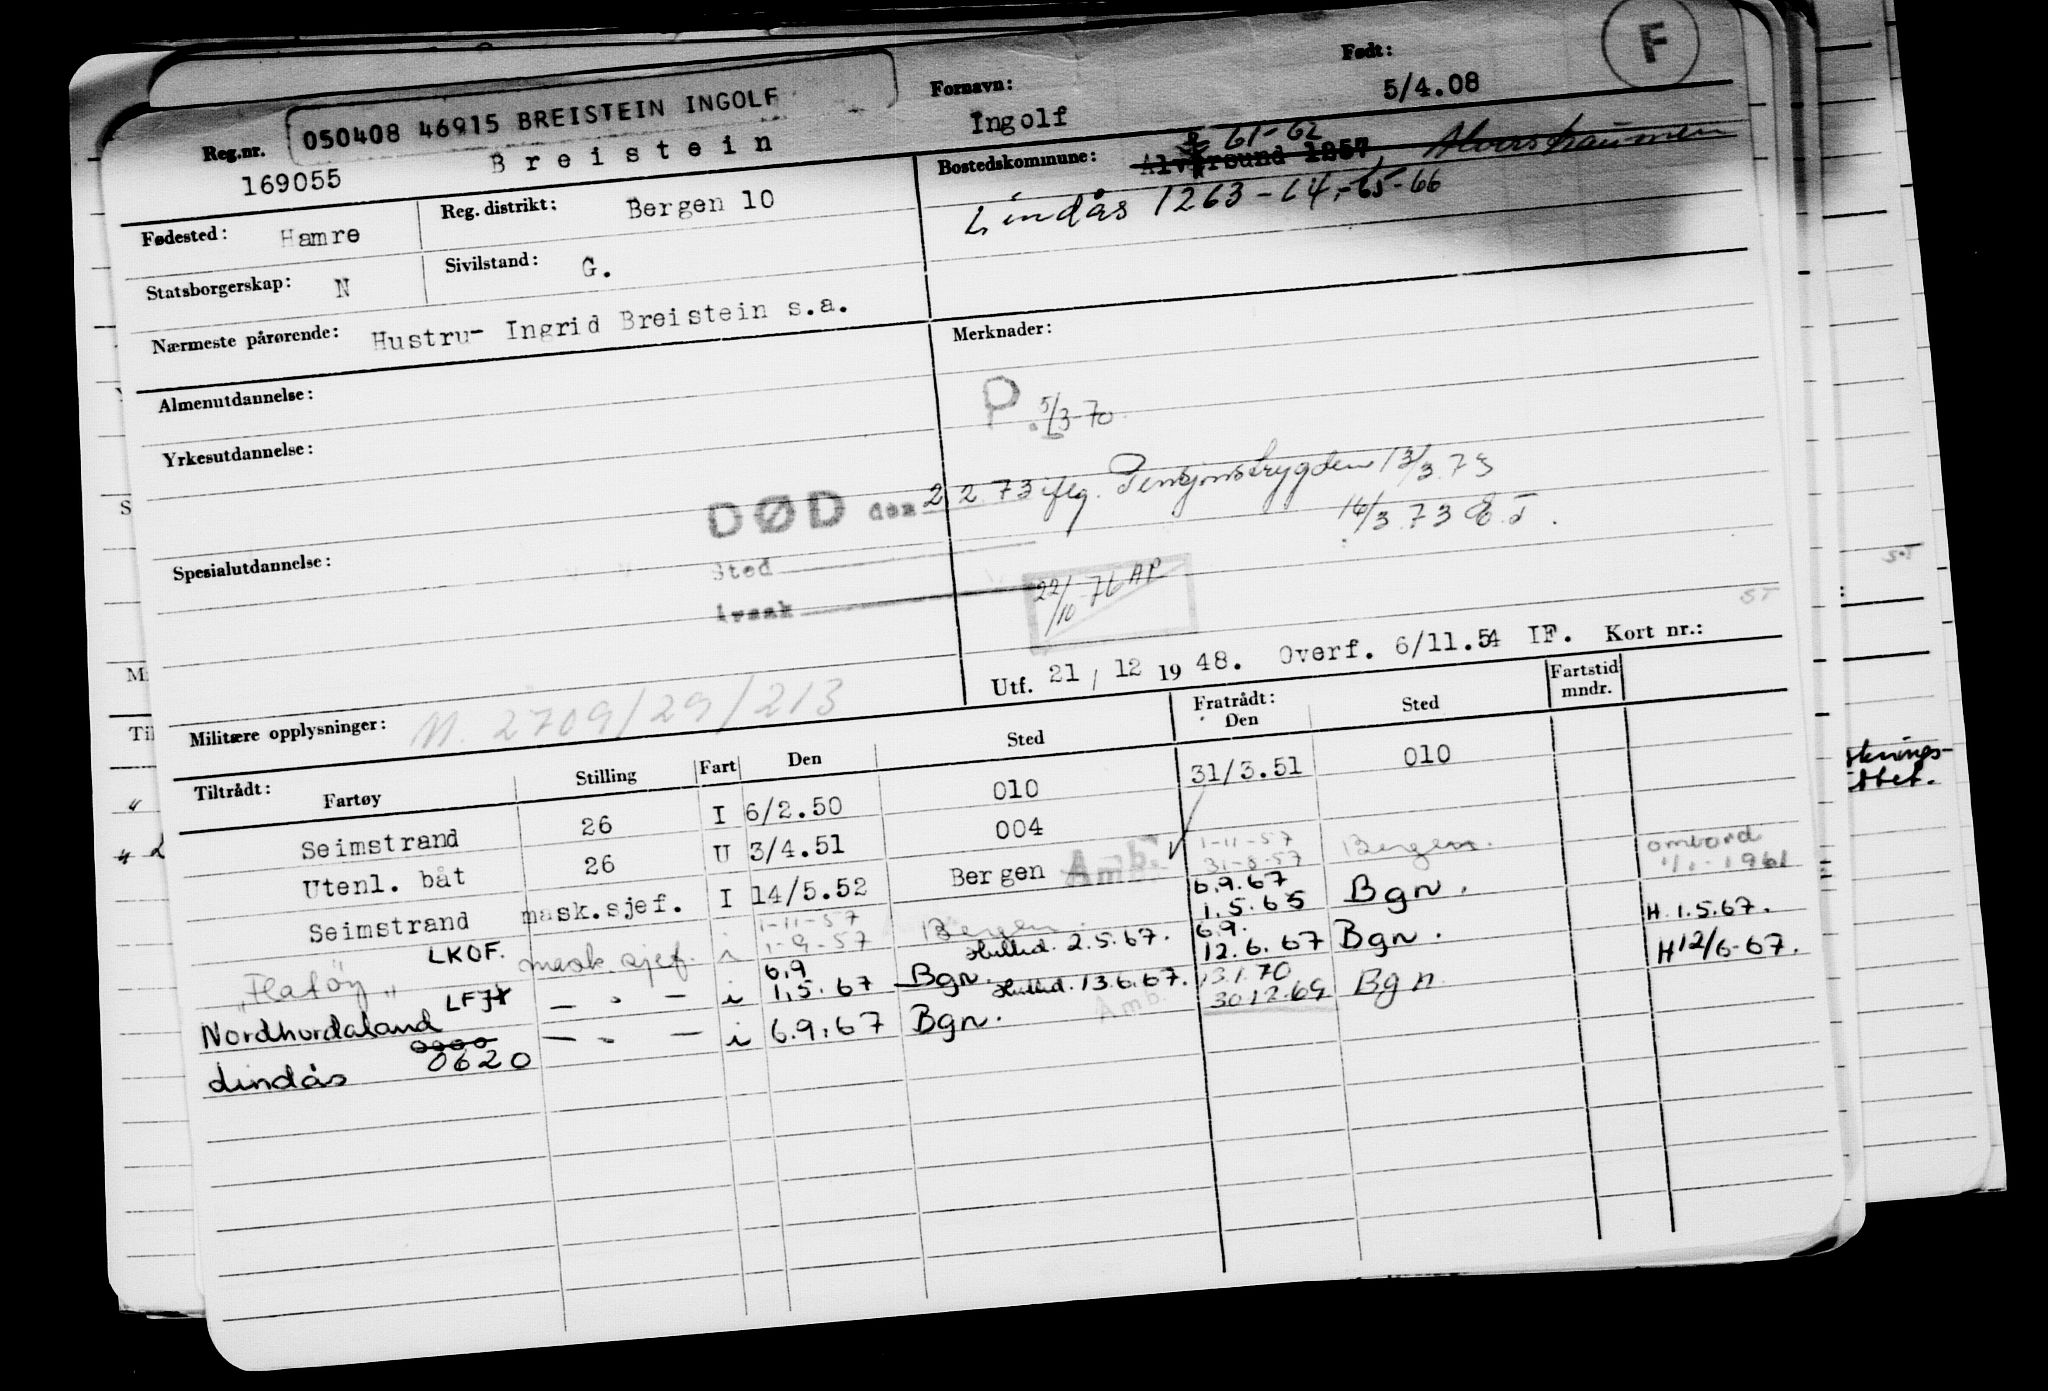 F
050408 46915 BREISTEIN INGOLF
Reg.nr. 169055 Breistein
Fornavn: Ingolf
Født: 5/4.08
Fødested: Hamre
Reg. distrikt: Bergen 10
Bostedskommune: 61-62
Alversund 1257, Alverstraumen
Lindås 1263-64,-65-66
Statsborgerskap: N
Sivilstand: G.
Nærmeste pårørende: Hustru- Ingrid Breistein s.a.
Almenutdannelse:
Yrkesutdannelse:
Spesialutdannelse:
Merknader:
P. 5/3-70
DØD den 2 2 73 iflg. Pensjonstrygden 13/3.73
14/3.73 E.T.
Sted
Årsak
22/10-76 AP
ST
Utf. 21/12 1948. Overf. 6/11.54 IF. Kort nr.:
Militære opplysninger: M. 2709/29/213
Tiltrådt: Fartøy Stilling Fart Den Sted Fratrådt: Den Sted Fartstid mndr.
Seimstrand 26 I 6/2.50 010 31/3.51 010
Utenl. båt 26 U 3/4.51 004
Seimstrand mask.sjef. I 14/5.52 Bergen Amb. 1-11-57 31-8-57 Bergen. ombord 1/1-1961
"Flatøy" LKOF. mask.sjef. i 1-11-57 1-9-57 Bergen 6.9.67 1.5.65 Bgn. H 1.5.67.
Nordhordaland LFJX — " — i 6.9 1.5.67 Bgn. Hullid. 2.5.67. 6.9. 12.6.67 Bgn. H12/6-67.
Lindås 0620 — " — i 6.9.67 Bgn. Hullid. 13.6.67. Amb. 13.1.70 30.12.69 Bgn